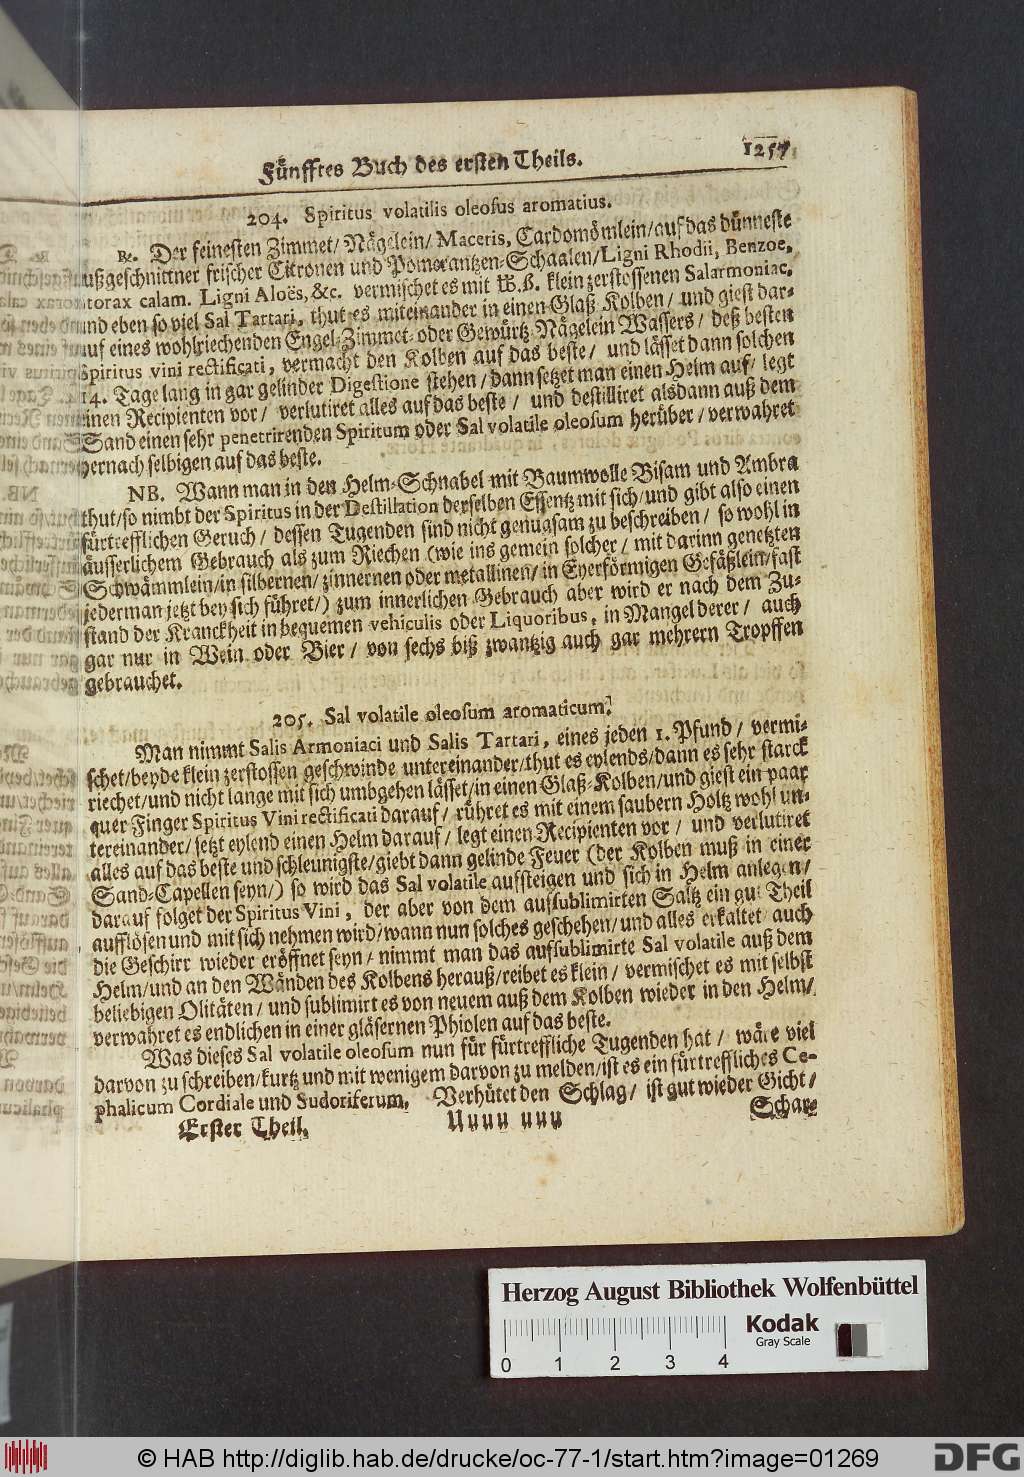 Fünfftes Buch des ersten Theils. 1257
204. Spiritus volatilis oleosus aromatius.
℞. Der feinesten Zimmet/ Nägelein/ Maceris, Cardomömlein/auf das dünneste
ußgeschnittner frischer Citronen und Pomerantzen-Schaalen/Ligni Rhodii, Benzoe,
torax calam. Ligni Aloës, &c. vermischet es mit klein zerstossenen Salarmoniac,
nd eben so viel Sal Tartari, thut es miteinander in einen Glaß-Kolben/ und giest dar-
uf eines wohlriechenden Engel-Zimmet- oder Gewürtz-Nägelein Wassers/ deß besten
Spiritus vini rectificati, vermacht den Kolben auf das beste/ und lässet dann solchen
14. Tage lang in gar gelinder Digestione stehen/dann setzet man einen Helm auf/ legt
inen Recipienten vor/ verlutiret alles auf das beste/ und destilliret alsdann auß dem
Sand einen sehr penetrirenden Spiritum oder Sal volatile oleosum herüber/verwahret
hernach selbigen auf das beste.
NB. Wann man in den Helm-Schnabel mit Baumwolle Bisam und Ambra
thut/so nimbt der Spiritus in der Destillation derselben Essentz mit sich/und gibt also einen
fürtrefflichen Geruch/ dessen Tugenden sind nicht genugsam zu beschreiben/ so wohl in
äusserlichem Gebrauch als zum Riechen (wie ins gemein solcher/ mit darinn genetzten
Schwämmlein/in silbernen/zinnernen oder metallinen/in Eyerförmigen Gefäßlein/fast
jederman jetzt bey sich führet/) zum innerlichen Gebrauch aber wird er nach dem Zu-
stand der Kranckheit in bequemen vehiculis oder Liquoribus, in Mangel derer/ auch
gar nur in Wein oder Bier/ von sechs biß zwantzig auch gar mehrern Tropffen
gebrauchet.
205. Sal volatile oleosum aromaticum.
Man nimmt Salis Armoniaci und Salis Tartari, eines jeden 1. Pfund/ vermi-
schet/beyde klein zerstossen geschwinde untereinander/thut es eylends/dann es sehr starck
riechet/und nicht lange mit sich umbgehen lässet/in einen Glaß-Kolben/und giest ein paar
quer-Finger Spiritus Vini rectificati darauf/ rühret es mit einem saubern Holtz wohl un-
tereinander/setzt eylend einen Helm darauf/ legt einen Recipienten vor/ und verlutiret
alles auf das beste und schleunigste/giebt dann gelinde Feuer (der Kolben muß in einer
Sand-Capellen seyn/) so wird das Sal volatile aufsteigen und sich in Helm anlegen/
darauf folget der Spiritus Vini, der aber von dem aufsublimirten Saltz ein gut Theil
aufflösen und mit sich nehmen wird/wann nun solches geschehen/und alles erkaltet auch
die Geschirr wieder eröffnet seyn/ nimmt man das aufsublimirte Sal volatile auß dem
Helm/und an den Wänden des Kolbens herauß/reibet es klein/ vermischet es mit selbst
beliebigen Olitäten/ und sublimirt es von neuem auß dem Kolben wieder in den Helm/
verwahret es endlichen in einer gläsernen Phiolen auf das beste.
Was dieses Sal volatile oleosum nun für fürtreffliche Tugenden hat/ wäre viel
darvon zu schreiben/kurtz und mit wenigem darvon zu melden/ist es ein fürtreffliches Ce-
phalicum Cordiale und Sudoriferum. Verhütet den Schlag/ ist gut wieder Gicht/
Erster Theil. Uuuu uuu Schar-
Herzog August Bibliothek Wolfenbüttel
Kodak
Gray Scale
0 1 2 3 4
© HAB http://diglib.hab.de/drucke/oc-77-1/start.htm?image=01269
DFG